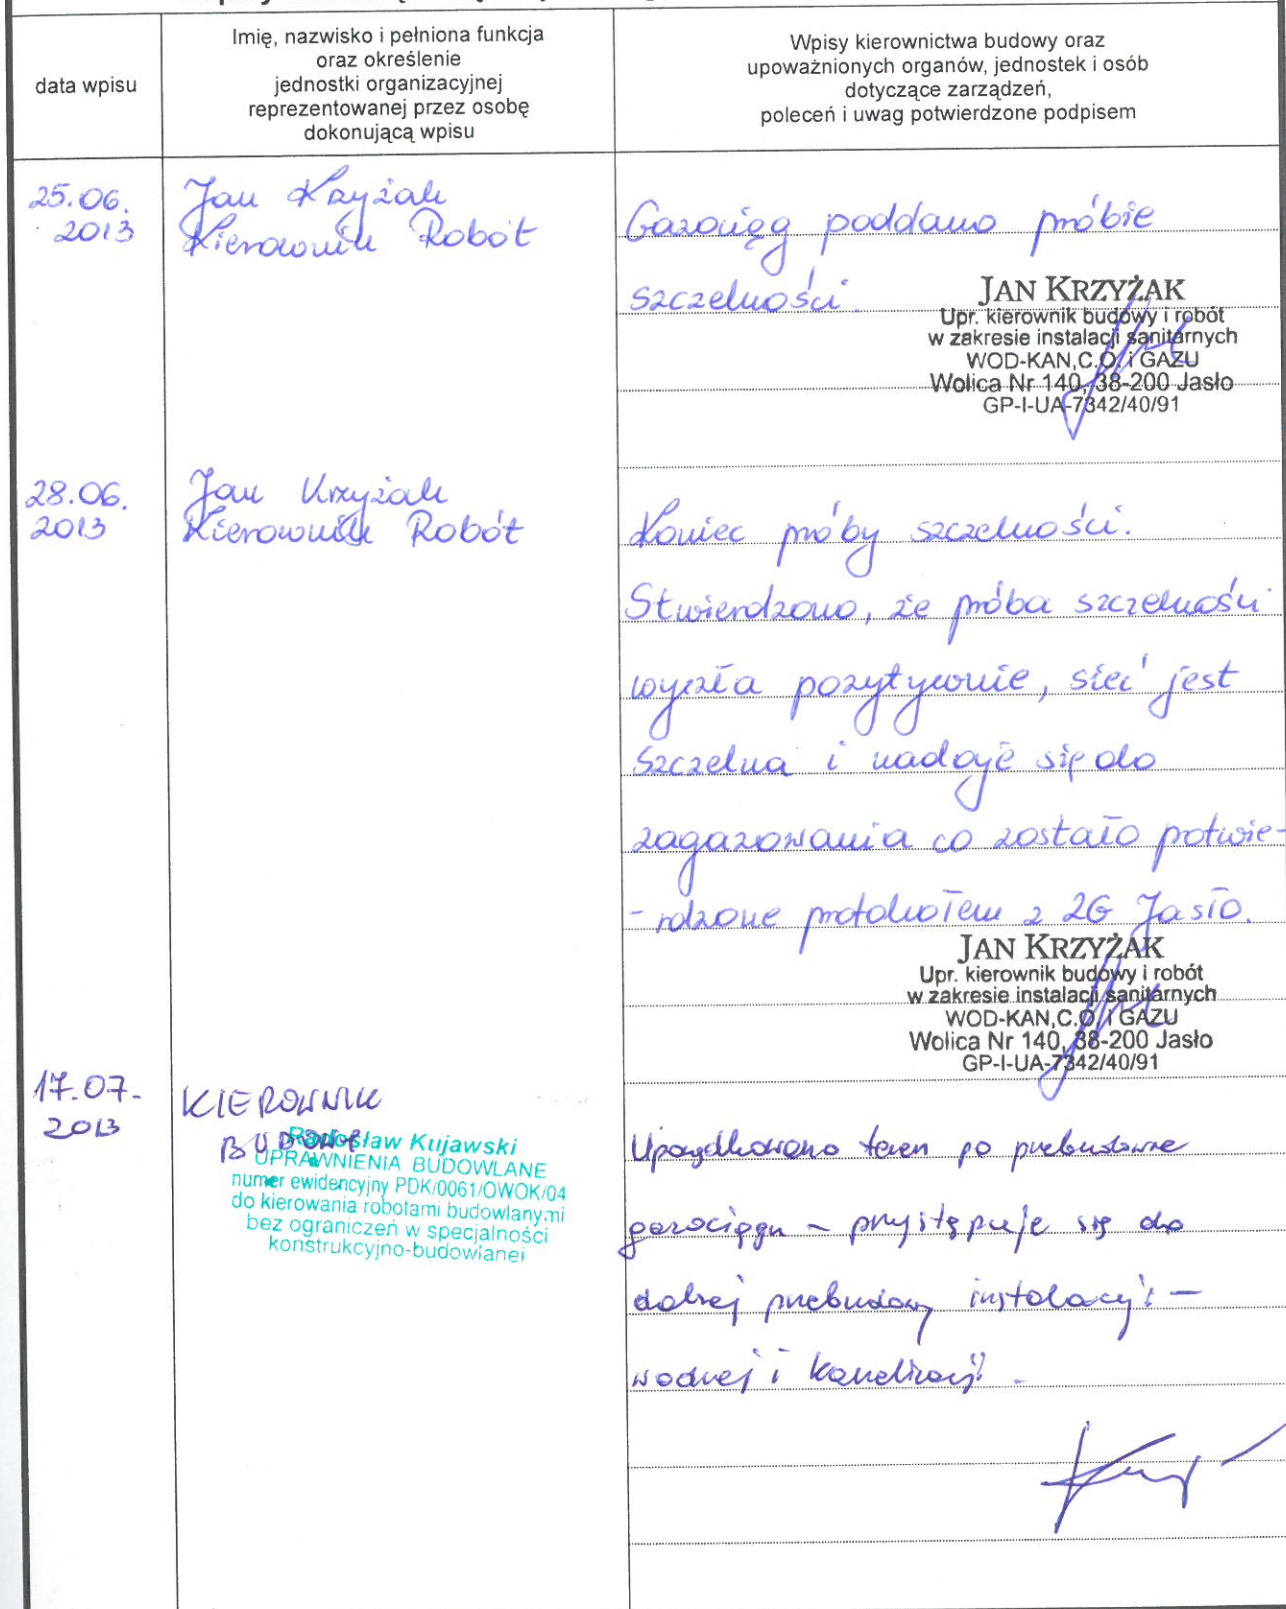 data wpisu
Imię, nazwisko i pełniona funkcja
oraz określenie
jednostki organizacyjnej
reprezentowanej przez osobę
dokonującą wpisu
Wpisy kierownictwa budowy oraz
upoważnionych organów, jednostek i osób
dotyczące zarządzeń,
poleceń i uwag potwierdzone podpisem
25.06.
2013
Jan Krzyżak
Kierownik Robót
Gazociąg poddano próbie
szczelności.
JAN KRZYŻAK
Upr. kierownik budowy i robót
w zakresie instalacji sanitarnych
WOD-KAN,C.O. i GAZU
Wolica Nr 140, 38-200 Jasło
GP-I-UA-7342/40/91
28.06.
2013
Jan Krzyżak
Kierownik Robót
Koniec próby szczelności.
Stwierdzono, że próba szczelności
wyszła pozytywnie, sieć jest
szczelna i nadaje się do
zagazowania co zostało potwie-
-rdzone protokołem z ZG Jasło.
JAN KRZYŻAK
Upr. kierownik budowy i robót
w zakresie instalacji sanitarnych
WOD-KAN,C.O. i GAZU
Wolica Nr 140, 38-200 Jasło
GP-I-UA-7342/40/91
17.07.
2013
KIEROWNIK
BUDOWY
Radosław Kujawski
UPRAWNIENIA BUDOWLANE
numer ewidencyjny PDK/0061/OWOK/04
do kierowania robotami budowlanymi
bez ograniczeń w specjalności
konstrukcyjno-budowlanej
Uporządkowano teren po przebudowie
gazociągu – przystępuje się do
dalszej przebudowy instalacji –
wodnej i kanalizacji. -